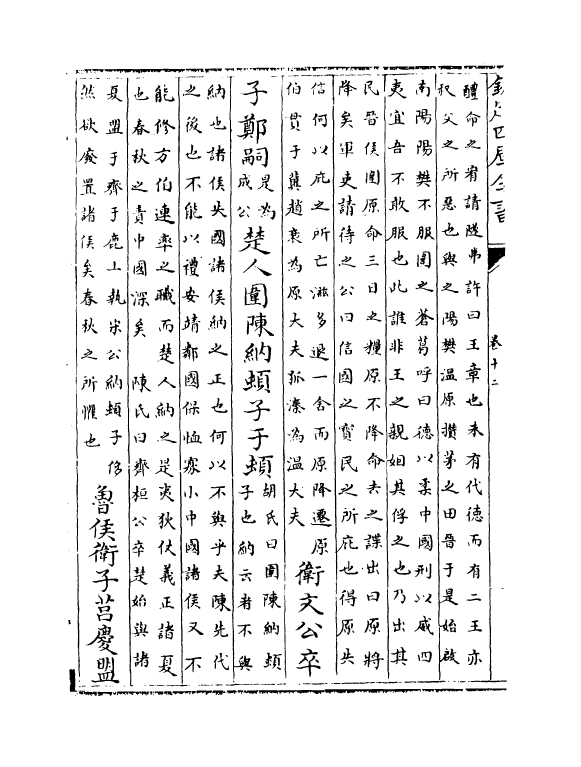 欽定四庫全書
卷十二
醴命之宥請隧弗許曰王章也未有代德而有二王亦
叔父之所惡也與之陽樊温原攢茅之田晉于是始啟
南陽陽樊不服圍之蒼葛呼曰德以柔中國刑以威四
夷宜吾不敢服也此誰非王之親姻其俘之也乃出其
民晉侯圍原命三日之糧原不降命去之諜出曰原將
降矣軍吏請待之公曰信國之寳民之所庇也得原失
信何以庇之所亡滋多退一舍而原降遷原
伯貫于冀趙衰為原大夫狐溱為温大夫
衛文公卒
子鄭嗣
是為
成公
楚人圍陳納頓子于頓
胡氏曰圍陳納頓
子也納云者不與
納也諸侯失國諸侯納之正也何以不與乎夫陳先代
之後也不能以禮安靖鄰國保恤寡小中國諸侯又不
能修方伯連率之職而楚人納之是夷狄仗義正諸夏
也春秋之責中國深矣 陳氏曰齊桓公卒楚始與諸
夏盟于齊于鹿上執宋公納頓子侈
然欲廢置諸侯矣春秋之所懼也
魯侯衛子莒慶盟